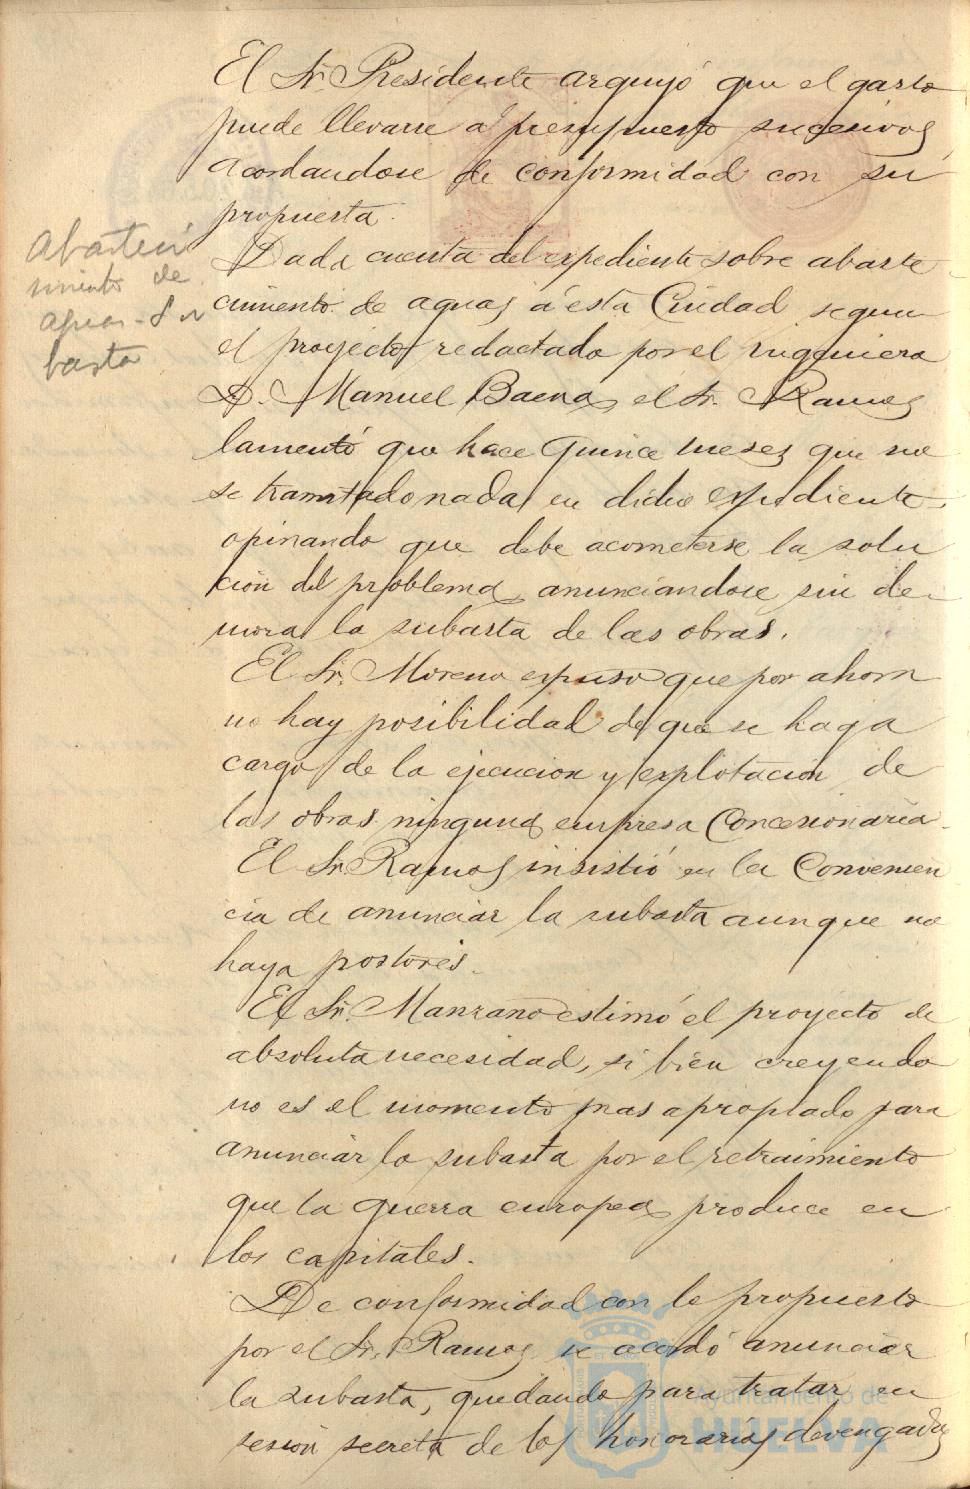 El Sr. Presidente arguyó que el gasto
puede llevarse a presupuesto sucesivos
acordandose de conformidad con su
propuesta.
Abasteci
miento de
aguas - Su
basta
Dada cuenta del expediente sobre abaste
cimiento de aguas á esta Ciudad segun
el proyecto redactado por el ingeniero
D. Manuel Baena, el Sr. Ramos
lamentó que hace quince meses que no
se tramitado nada en dicho expediente,
opinando que debe acometerse la solu
ción del problema, anunciandose sin de-
mora la subasta de las obras.
El Sr. Moreno expuso que por ahora
no hay posibilidad de que se haga
cargo de la ejecucion y explotacion de
las obras ninguna empresa Concesionaria.
El Sr. Ramos insistió en la Convenien
cia de anunciar la subasta aunque no
haya postores.
El Sr. Manzano estimó el proyecto de
absoluta necesidad, si bien creyendo
no es el momento mas apropiado para
anunciar la subasta por el retraimiento
que la guerra europea produce en
los capitales.
De conformidad con lo propuesto
por el Sr. Ramos se acordó anunciar
la subasta, quedando para tratar en
sesión secreta de los honorarios devengados
Ayuntamiento de
HUELVA